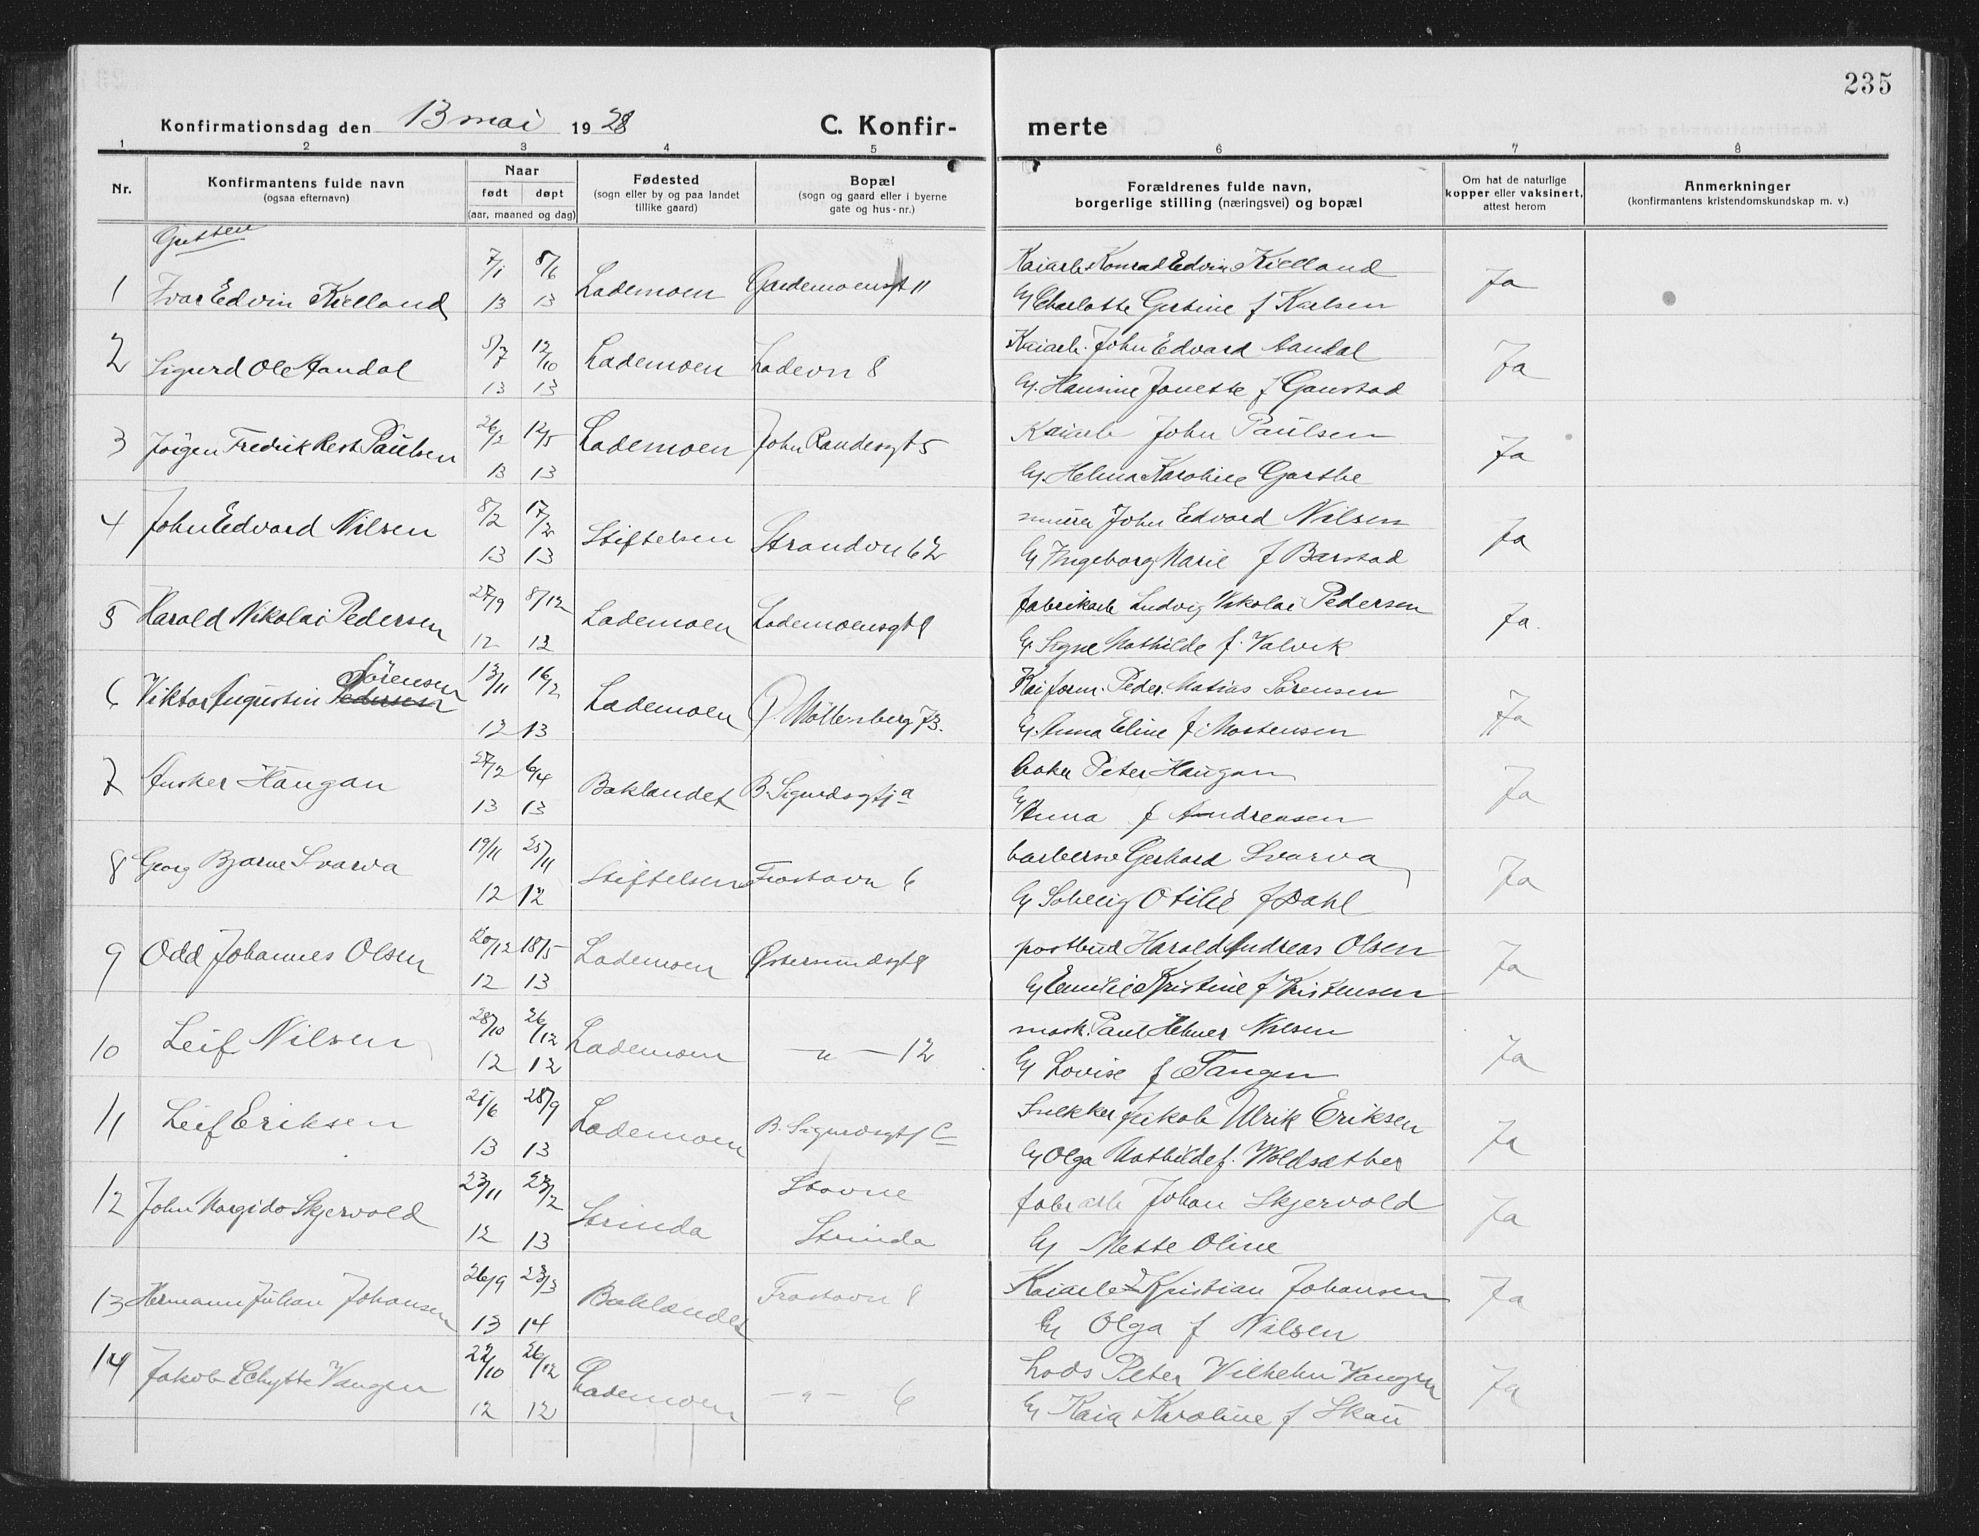 235
Konfirmationsdag den 13 mai 1928 C. Konfir- merte
1 2 3 4 5 6 7 8
Nr. Konfirmantens fulde navn (ogsaa efternavn) Naar født døpt (aar, maaned og dag) Fødested (sogn eller by og paa landet tillike gaard) Bopæl (sogn og gaard eller i byerne gate og hus-nr.) Forældrenes fulde navn, borgerlige stilling (næringsvei) og bopæl Om hat de naturlige kopper eller vaksinert, attest herom Anmerkninger (konfirmantens kristendomskundskap m. v.)
Gutter
7/1 8/6 Kaiarb. Konrad Edvin Kielland
1 Ivar Edvin Kielland 13 13 Lademoen Gardemoensgt 11 Ja
Charlotte Gurine f Karlsen
5/7 12/10 Kaiarb. John Edvard Aandal
2 Sigurd Ole Aandal 13 13 Lademoen Ladevn 8 Ja
Hansine Jonette f Gaustad
26/2 12/5 Kaiarb John Paulsen
3 Jørgen Fredrik Paulsen 13 13 Lademoen John Randesgt 5 Ja
Helma Karoline Garthe
8/2 17/2 murer John Edvard Nilsen
4 John Edvard Nilsen 13 13 Stiftelsen Strandvn 62 Ja
Ingeborg Marie f Barstad
27/9 8/12 fabrikarb Ludvig Nikolai Pedersen
5 Harald Nikolai Pedersen 12 12 Lademoen Lademoensgt 8 Ja.
Signe Mathilde f. Valvik
Sørensen 13/11 16/2 Kaiform. Peder Matias Sørensen
6 Viktor Augustin Pedersen 12 13 Lademoen Møllenberg 73. Ja
Anna Eline f. Mortensen
27/2 6/4 baker Peter Haugan
7 Ansker Haugan 13 13 Baklandet B. Sigurdsgt 1 a Ja
Anna f Andreasen
19/11 25/11 barbersv Gerhard Svarva
8 Georg Bjarne Svarva 12 12 Stiftelsen Frostavn 6 Ja
Solveig Otilie f Dahl
20/12 18/5 postbud Harald Andreas Olsen
9 Odd Johannes Olsen 12 13 Lademoen Østersundsgt 8 Ja
Emilie Kristine f Kristensen
28/10 26/12 mask. Paul Helmer Nilsen
10 Leif Nilsen 12 12 Lademoen — " — 12 Ja
Lovise f Tangen
25/6 28/9 Snekker Jakob Ulrik Eriksen
11 Leif Eriksen 13 13 Lademoen B. Sigurdsgt 1 C Ja
Olga Mathilde f. Woldsæther
23/11 Stavne fabr arb Johan Skjervold
12 John Margido Skjervold 12 13 Strinda Strinda Ja
Mette Oline
26/9 23/3 Kaiarb Kristian Johansen
13 Hermann Julian Johansen 13 14 Baklandet Frostavn 8 Ja
Olga f Nilsen
22/10 26/12 Lods Peter Vilhelm Vangen
14 Jakob Schytte Vangen 12 12 Lademoen — " — 6 Ja
Kaia Karoline f Skau